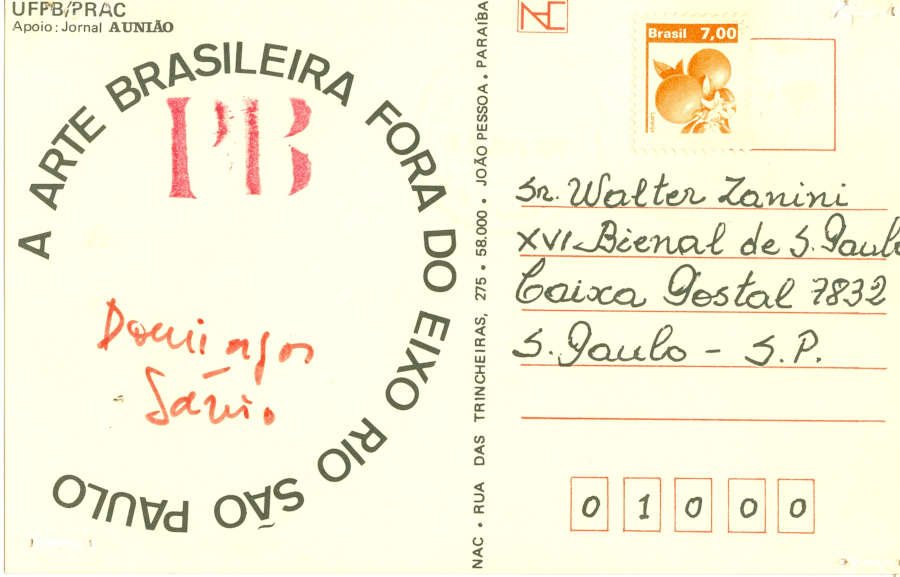 UFPB/PRAC
Apoio: Jornal A UNIÃO
A ARTE BRASILEIRA FORA DO EIXO RIO SÃO PAULO
PB
Domingos
Sávio.
NAC • RUA DAS TRINCHEIRAS, 275 • 58.000 • JOÃO PESSOA • PARAÍBA
Brasil 7,00
Sr. Walter Zanini
XVI-Bienal de S. Paulo
Caixa Postal 7832
S. Paulo - S.P.
0 1 0 0 0